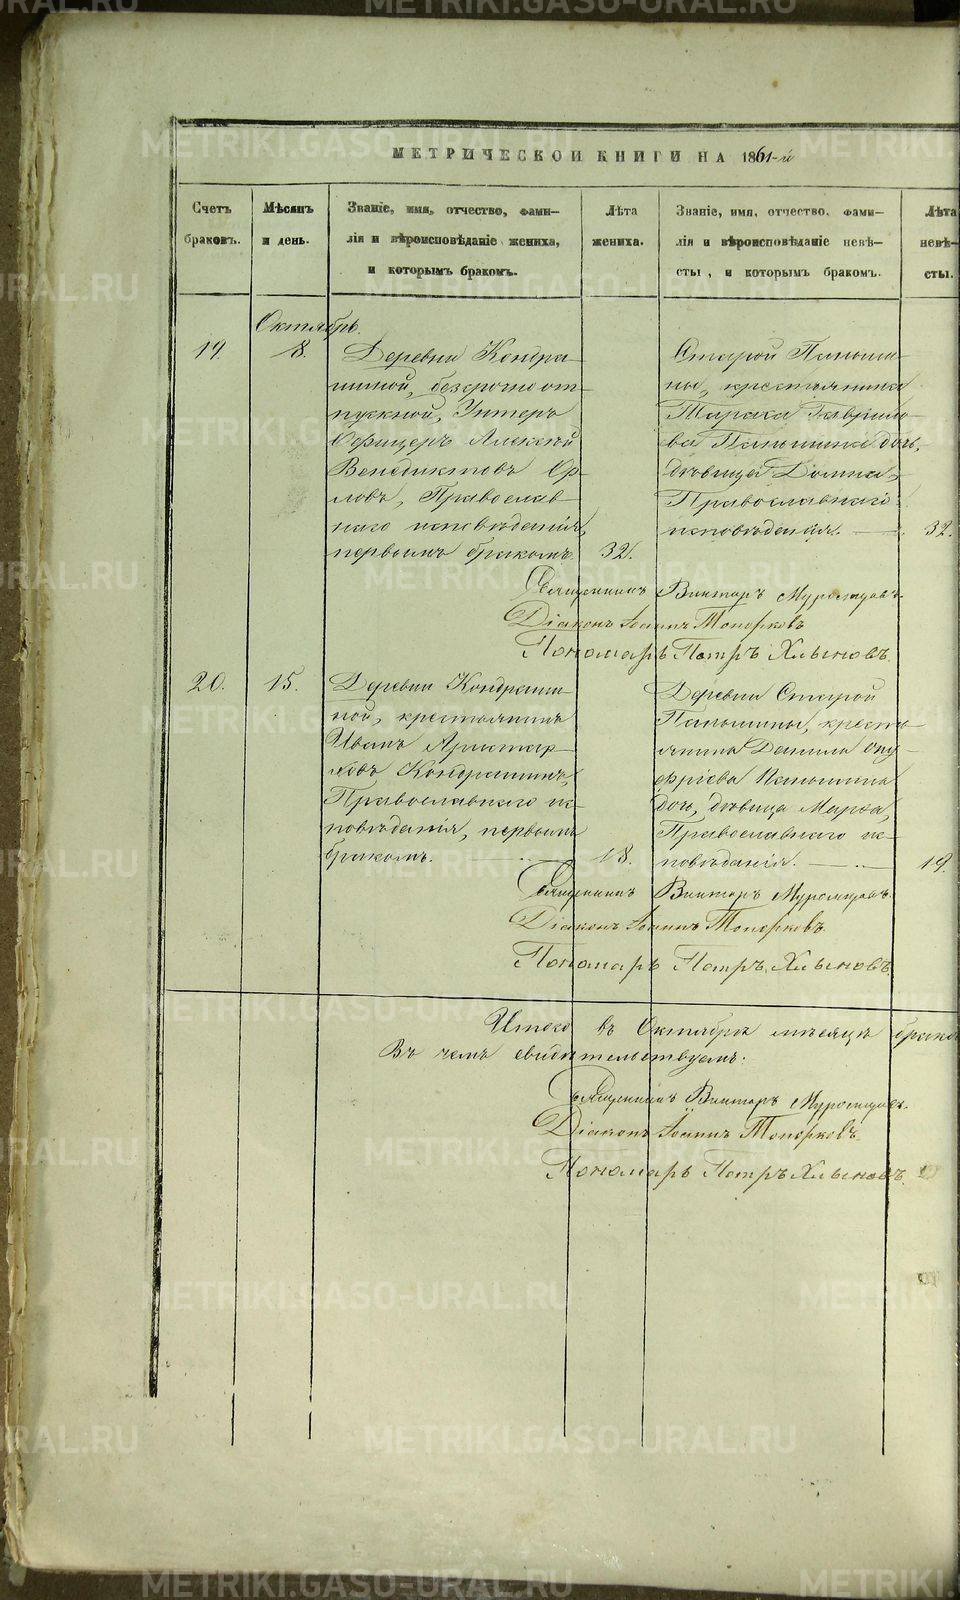 МЕТРИЧЕСКОЙ КНИГИ НА 1861-й
Счетъ браковъ.
Мѣсяцъ и день.
Званіе, имя, отчество, фами-
лія и вѣроисповѣданіе жениха,
и которымъ бракомъ.
Лѣта жениха.
Званіе, имя, отчество, фами-
лія и вѣроисповѣданіе невѣ-
сты, и которымъ бракомъ.
Лѣта невѣ-
сты.
Октябрь.
19.
8.
Деревни Кондра-
шиной, безсрочно от-
пускной, Унтеръ
Офицеръ Алексѣй
Венедиктовъ Ор-
ловъ, Православ-
наго исповѣданія,
первымъ бракомъ.
32.
Старой Паньши-
ны, крестьянина
Тараса Гаврило-
ва Паньшина дочь,
дѣвица Домна,
Православнаго
исповѣданія.
32.
Священникъ Викторъ Муромцовъ.
Діаконъ Іоаннъ Топорковъ
Пономарь Петръ Хлыновъ.
20.
15.
Деревни Кондраши-
ной, крестьянинъ
Иванъ Аристар-
ховъ Кондрашинъ,
Православнаго ис-
повѣданія, первымъ
бракомъ.
18.
Деревни Старой
Паньшины, кресть-
янина Данила Ону-
фріева Паньшина
дочь, дѣвица Марѳа,
Православнаго ис-
повѣданія.
19.
Священникъ Викторъ Муромцовъ.
Діаконъ Іоаннъ Топорковъ.
Пономарь Петръ Хлыновъ.
Итого въ Октябрѣ мѣсяцѣ брако
Въ чемъ свидѣтельствуемъ:
Священникъ Викторъ Муромцовъ.
Діаконъ Іоаннъ Топорковъ.
Пономарь Петръ Хлыновъ.
METRIKI.GASO-URAL.RU